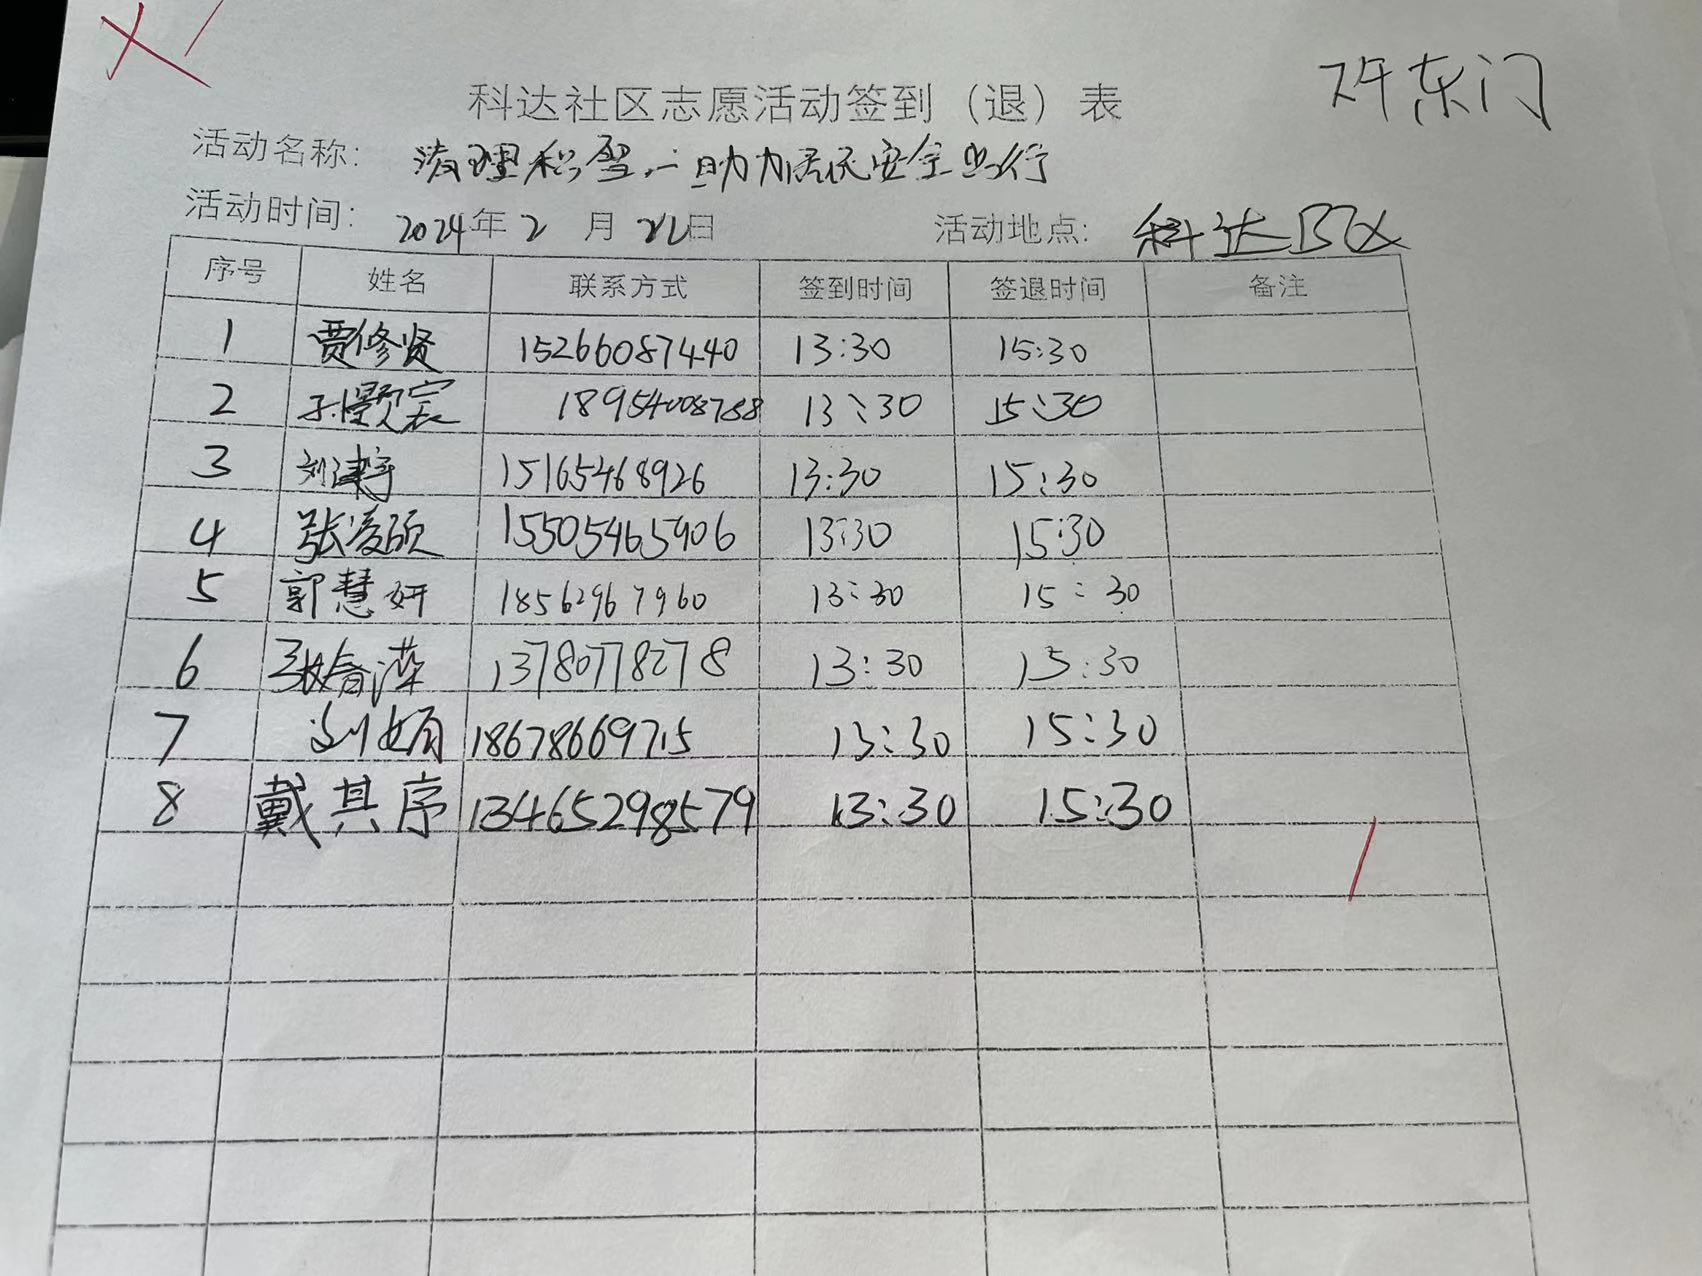 开东门
科达社区志愿活动签到（退）表
活动名称：清理积雪，助力居民安全出行
活动时间：2024年2月22日 活动地点：科达B区
序号 姓名 联系方式 签到时间 签退时间 备注
1 贾修贤 15266087440 13:30 15:30
2 孙颢宸 18954008788 13:30 15:30
3 刘津宇 15165468926 13:30 15:30
4 张凌硕 15505465906 13:30 15:30
5 郭慧妍 18562967960 13:30 15:30
6 张春萍 13780778278 13:30 15:30
7 刘娟 18678669715 13:30 15:30
8 戴其序 13465298579 13:30 15:30